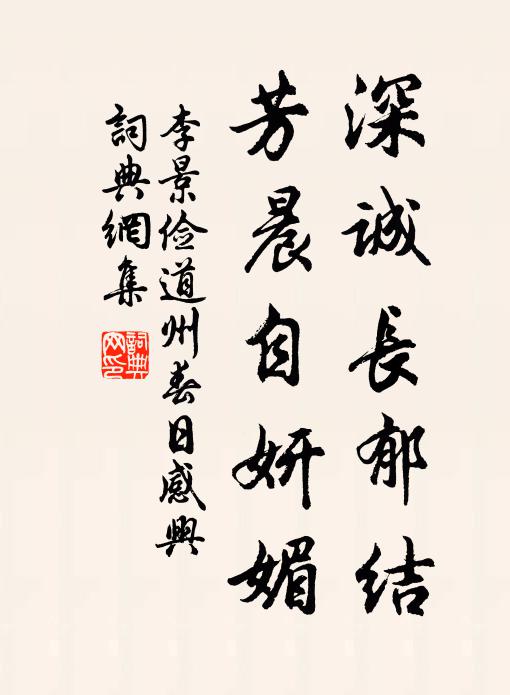 深誠長郁結
芳晨自妍媚
李景儉道州春日感興
詞典網集
詞典網印